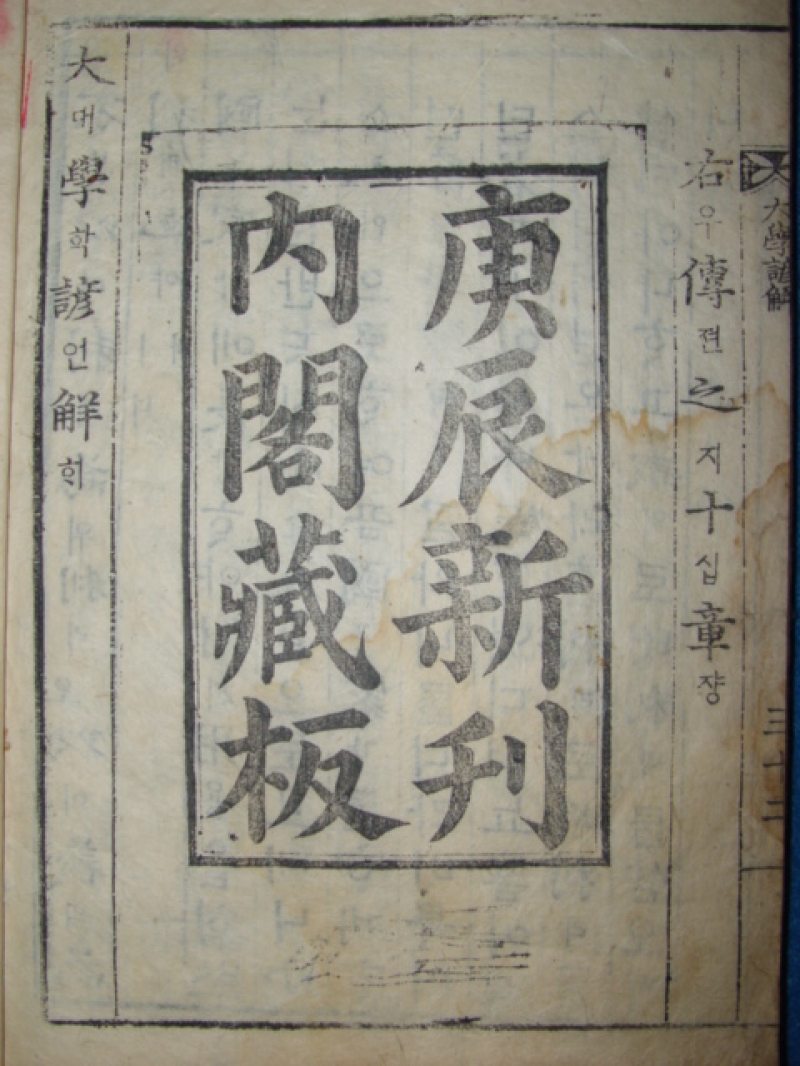 大學諺解 三十二
右우傳젼之지十십章쟝
庚辰新刊
内閣藏板
大대學학諺언解ᄒᆡ